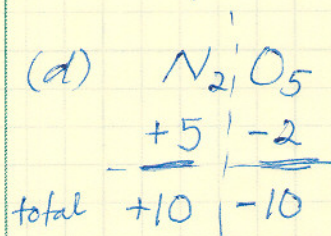 (d) N₂ O₅
+5 -2
total +10 -10